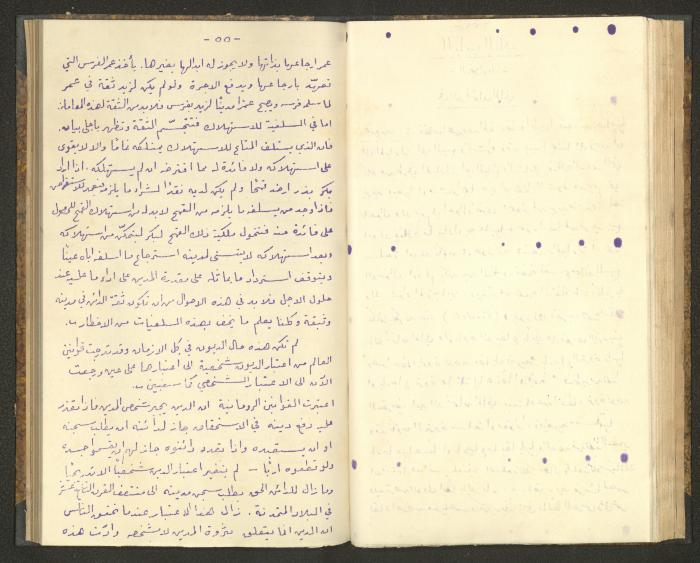 - ٥٥ -
عمر ارجاعها بذاتها ولا يجوز له ابدالها بغيرها. يأخذ عمر الفرس التي
تعهد بارجاعها ويدفع الاجرة ولو لم يكن لزيد ثقة في عمر
لما سلمه فرسه ويصبح عمر مدينًا لزيد بفرس فلا بد من الثقة لهذه المعاملة
اما في السلفية للاستهلاك فتتجسّم الثقة وتظهر باجلى بيان
فان الذي يستلف المتاع للاستهلاك يمتلكه تمامًا والا لا يقوى
على استهلاكه ولا فائدة له مما اقترضه ان لم يستهلكه. اذا اراد
بكر بذر ارضه قمحًا ولم يكن لديه نقدًا لشراء ما يلزمه
فاذا وجد من يسلفه ما يلزمه من القمح لا بد له من استهلاك القمح للحصول
على فائدة منه فتتحول ملكية ذلك القمح لبكر ليتمكّن من استهلاكه
وبعد استهلاكه لا يتسنى لمدينه استرجاع ما اسلفه اياه عينًا
ويتوقف استرداد ما يماثله على مقدرة المدين على اداء ما عليه عند
حلول الاجل فلا بد في هذه الاحوال من ان تكون ثقة الدائن في مدينه
وثيقة وكلنا يعلم ما يحف بهذه السلفيات من الاخطار.
لم تكن هذه حال الديون في كل الازمان وقد تدرجت قوانين
العالم من اعتبار الديون شخصية الى اعتبارها على عين ورجعت
الآن الى الاعتبار الشخصي كما سنبين.
اعتبرت القوانين الرومانية ان الدين يجبر شخص المدين فاذا تعذر
عليه دفع دينه في الاستحقاق جاز لدائنه ان يطلب سجنه
او ان يستعبده واذا تعدد دائنوه جاز لهم ان يقتسموا جسده
ولو قطعوه اربًا — لم يتغير اعتبار الدين شخصيًا الا تدريجيًا
وما زال للدائن الحق بطلب سجن مدينه الى منتصف القرن التاسع عشر
في البلاد المتمدنة. زال هذا الاعتبار عندما تحقق الناس
ان الدين انما يتعلق بثروة المدين لا بشخصه وادّت هذه